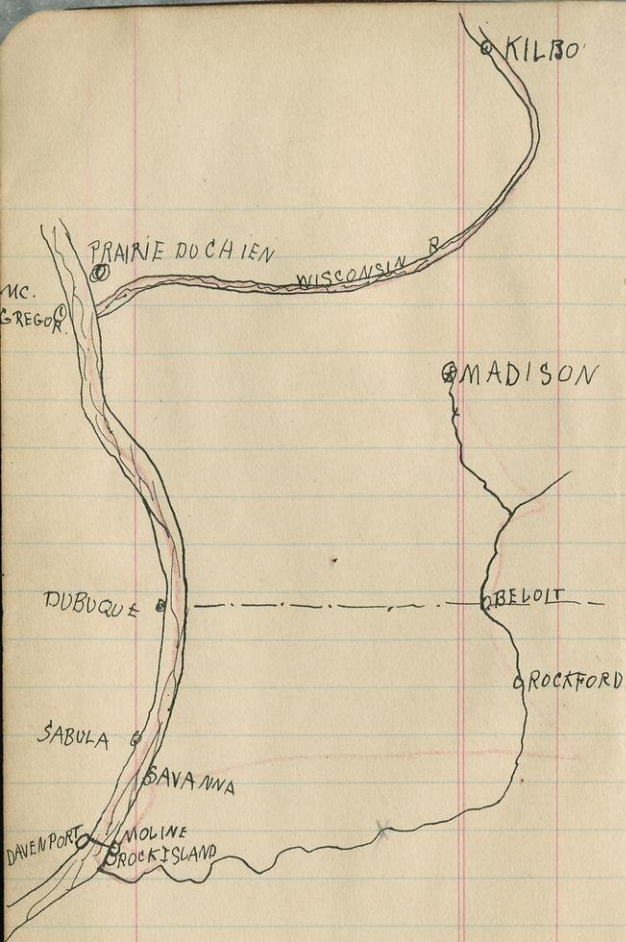 KILBO
PRAIRIE DU CHIEN
WISCONSIN R
MC.
GREGOR.
MADISON
DUBUQUE
BELOIT
ROCKFORD
SABULA
SAVANNA
DAVENPORT
MOLINE
ROCK ISLAND